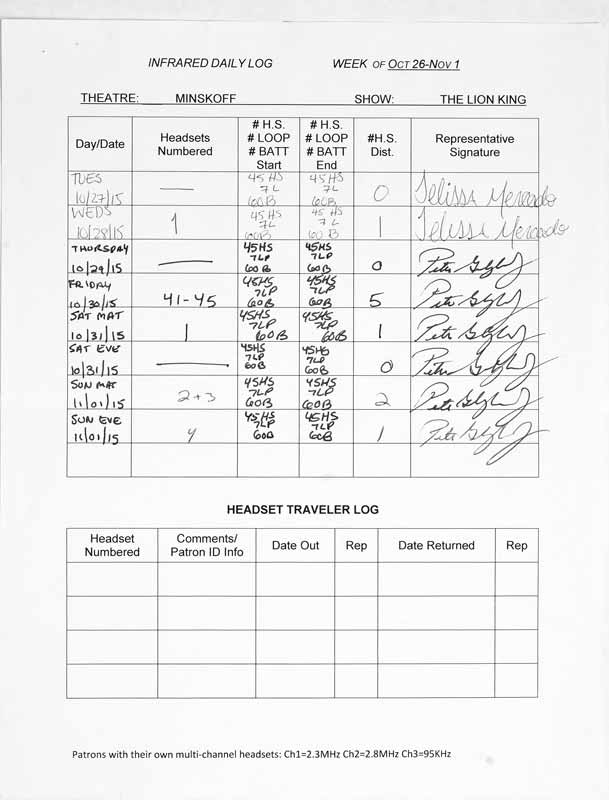 INFRARED DAILY LOG WEEK OF OCT 26-NOV 1
THEATRE: MINSKOFF SHOW: THE LION KING
Day/Date Headsets Numbered # H.S. # LOOP # BATT Start # H.S. # LOOP # BATT End #H.S. Dist. Representative Signature
TUES 10/27/15 — 45 HS 7L 60B 45 HS 7L 60B 0 Jelissa Mercado
WEDS 10/28/15 1 45 HS 7L 60B 45 HS 7L 60B 1 Jelissa Mercado
THURSDAY 10/29/15 — 45HS 7LP 60B 45HS 7LP 60B 0 Pete
FRIDAY 10/30/15 41-45 45HS 7LP 60B 45HS 7LP 60B 5 Pete
SAT MAT 10/31/15 1 45HS 7LP 60B 45HS 7LP 60B 1 Pete
SAT EVE 10/31/15 — 45HS 7LP 60B 45HS 7LP 60B 0 Pete
SUN MAT 11/01/15 2+3 45HS 7LP 60B 45HS 7LP 60B 2 Pete
SUN EVE 11/01/15 4 45HS 7LP 60B 45HS 7LP 60B 1 Pete
HEADSET TRAVELER LOG
Headset Numbered Comments/ Patron ID Info Date Out Rep Date Returned Rep
Patrons with their own multi-channel headsets: Ch1=2.3MHz Ch2=2.8MHz Ch3=95KHz